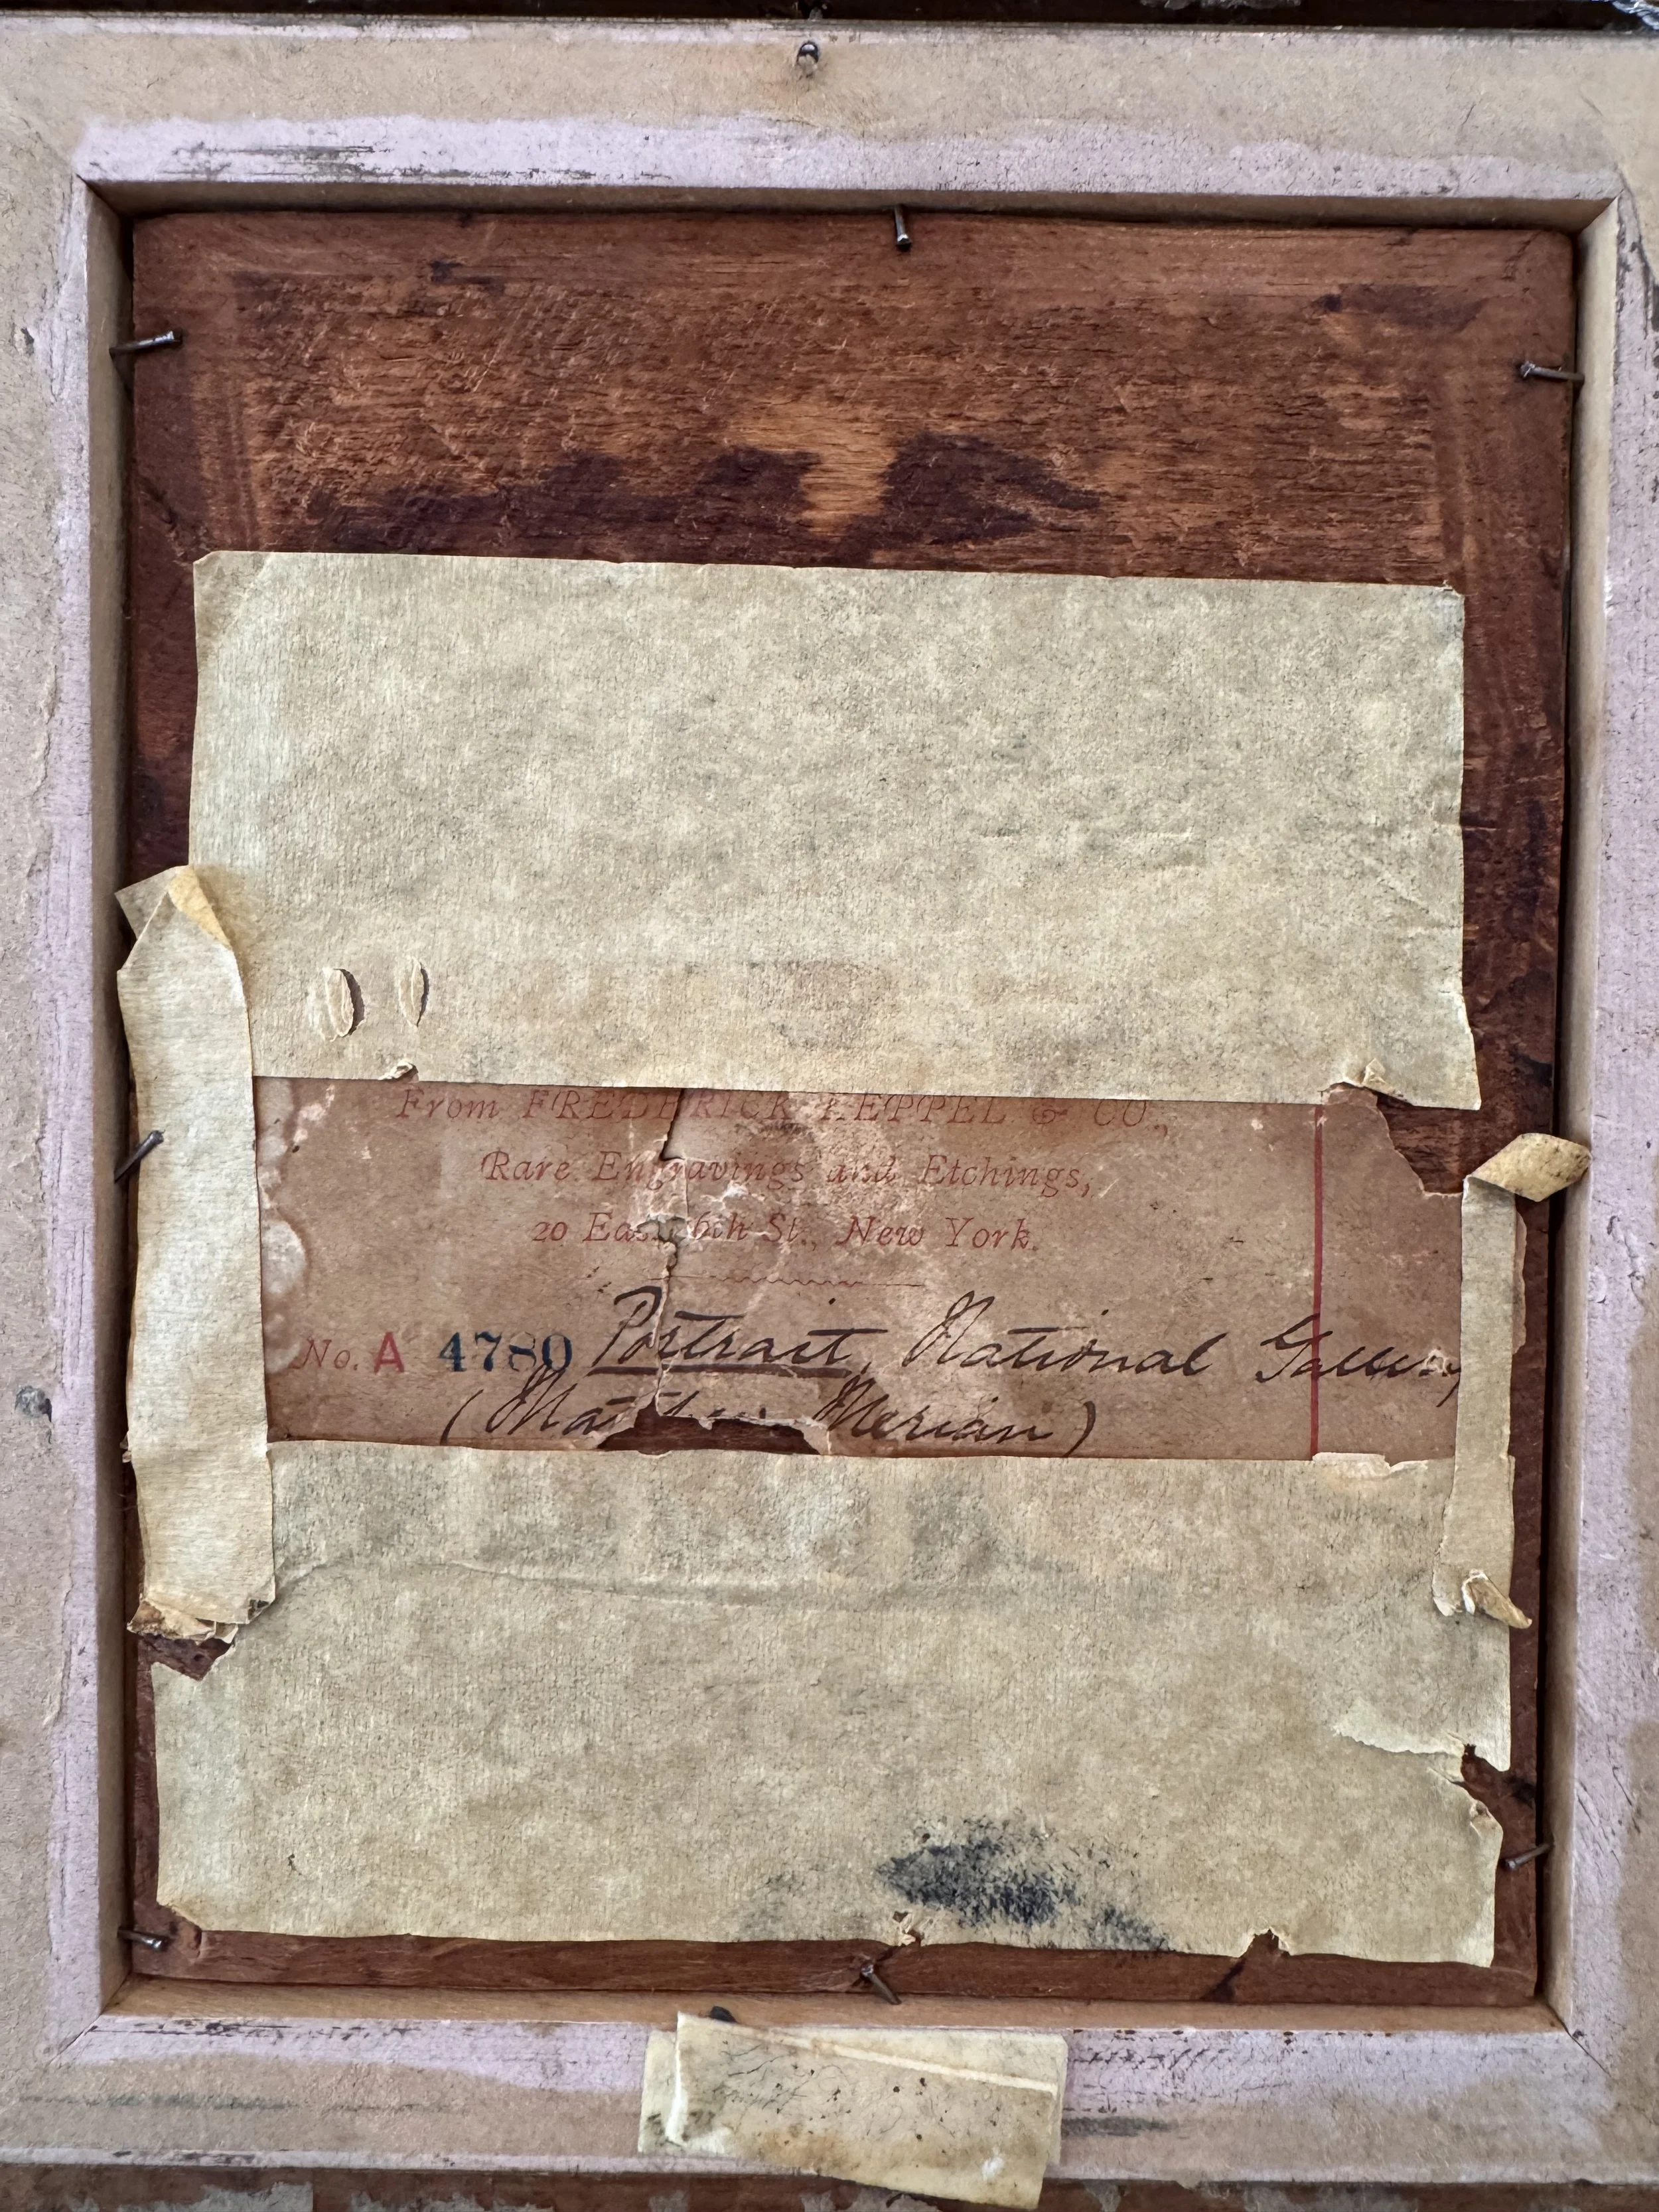 From FREDERICK KEPPEL & CO.,
Rare Engravings and Etchings,
20 East 16th St., New York.
No. A 4780 Portrait, National Gallery
(Matthew Merian)